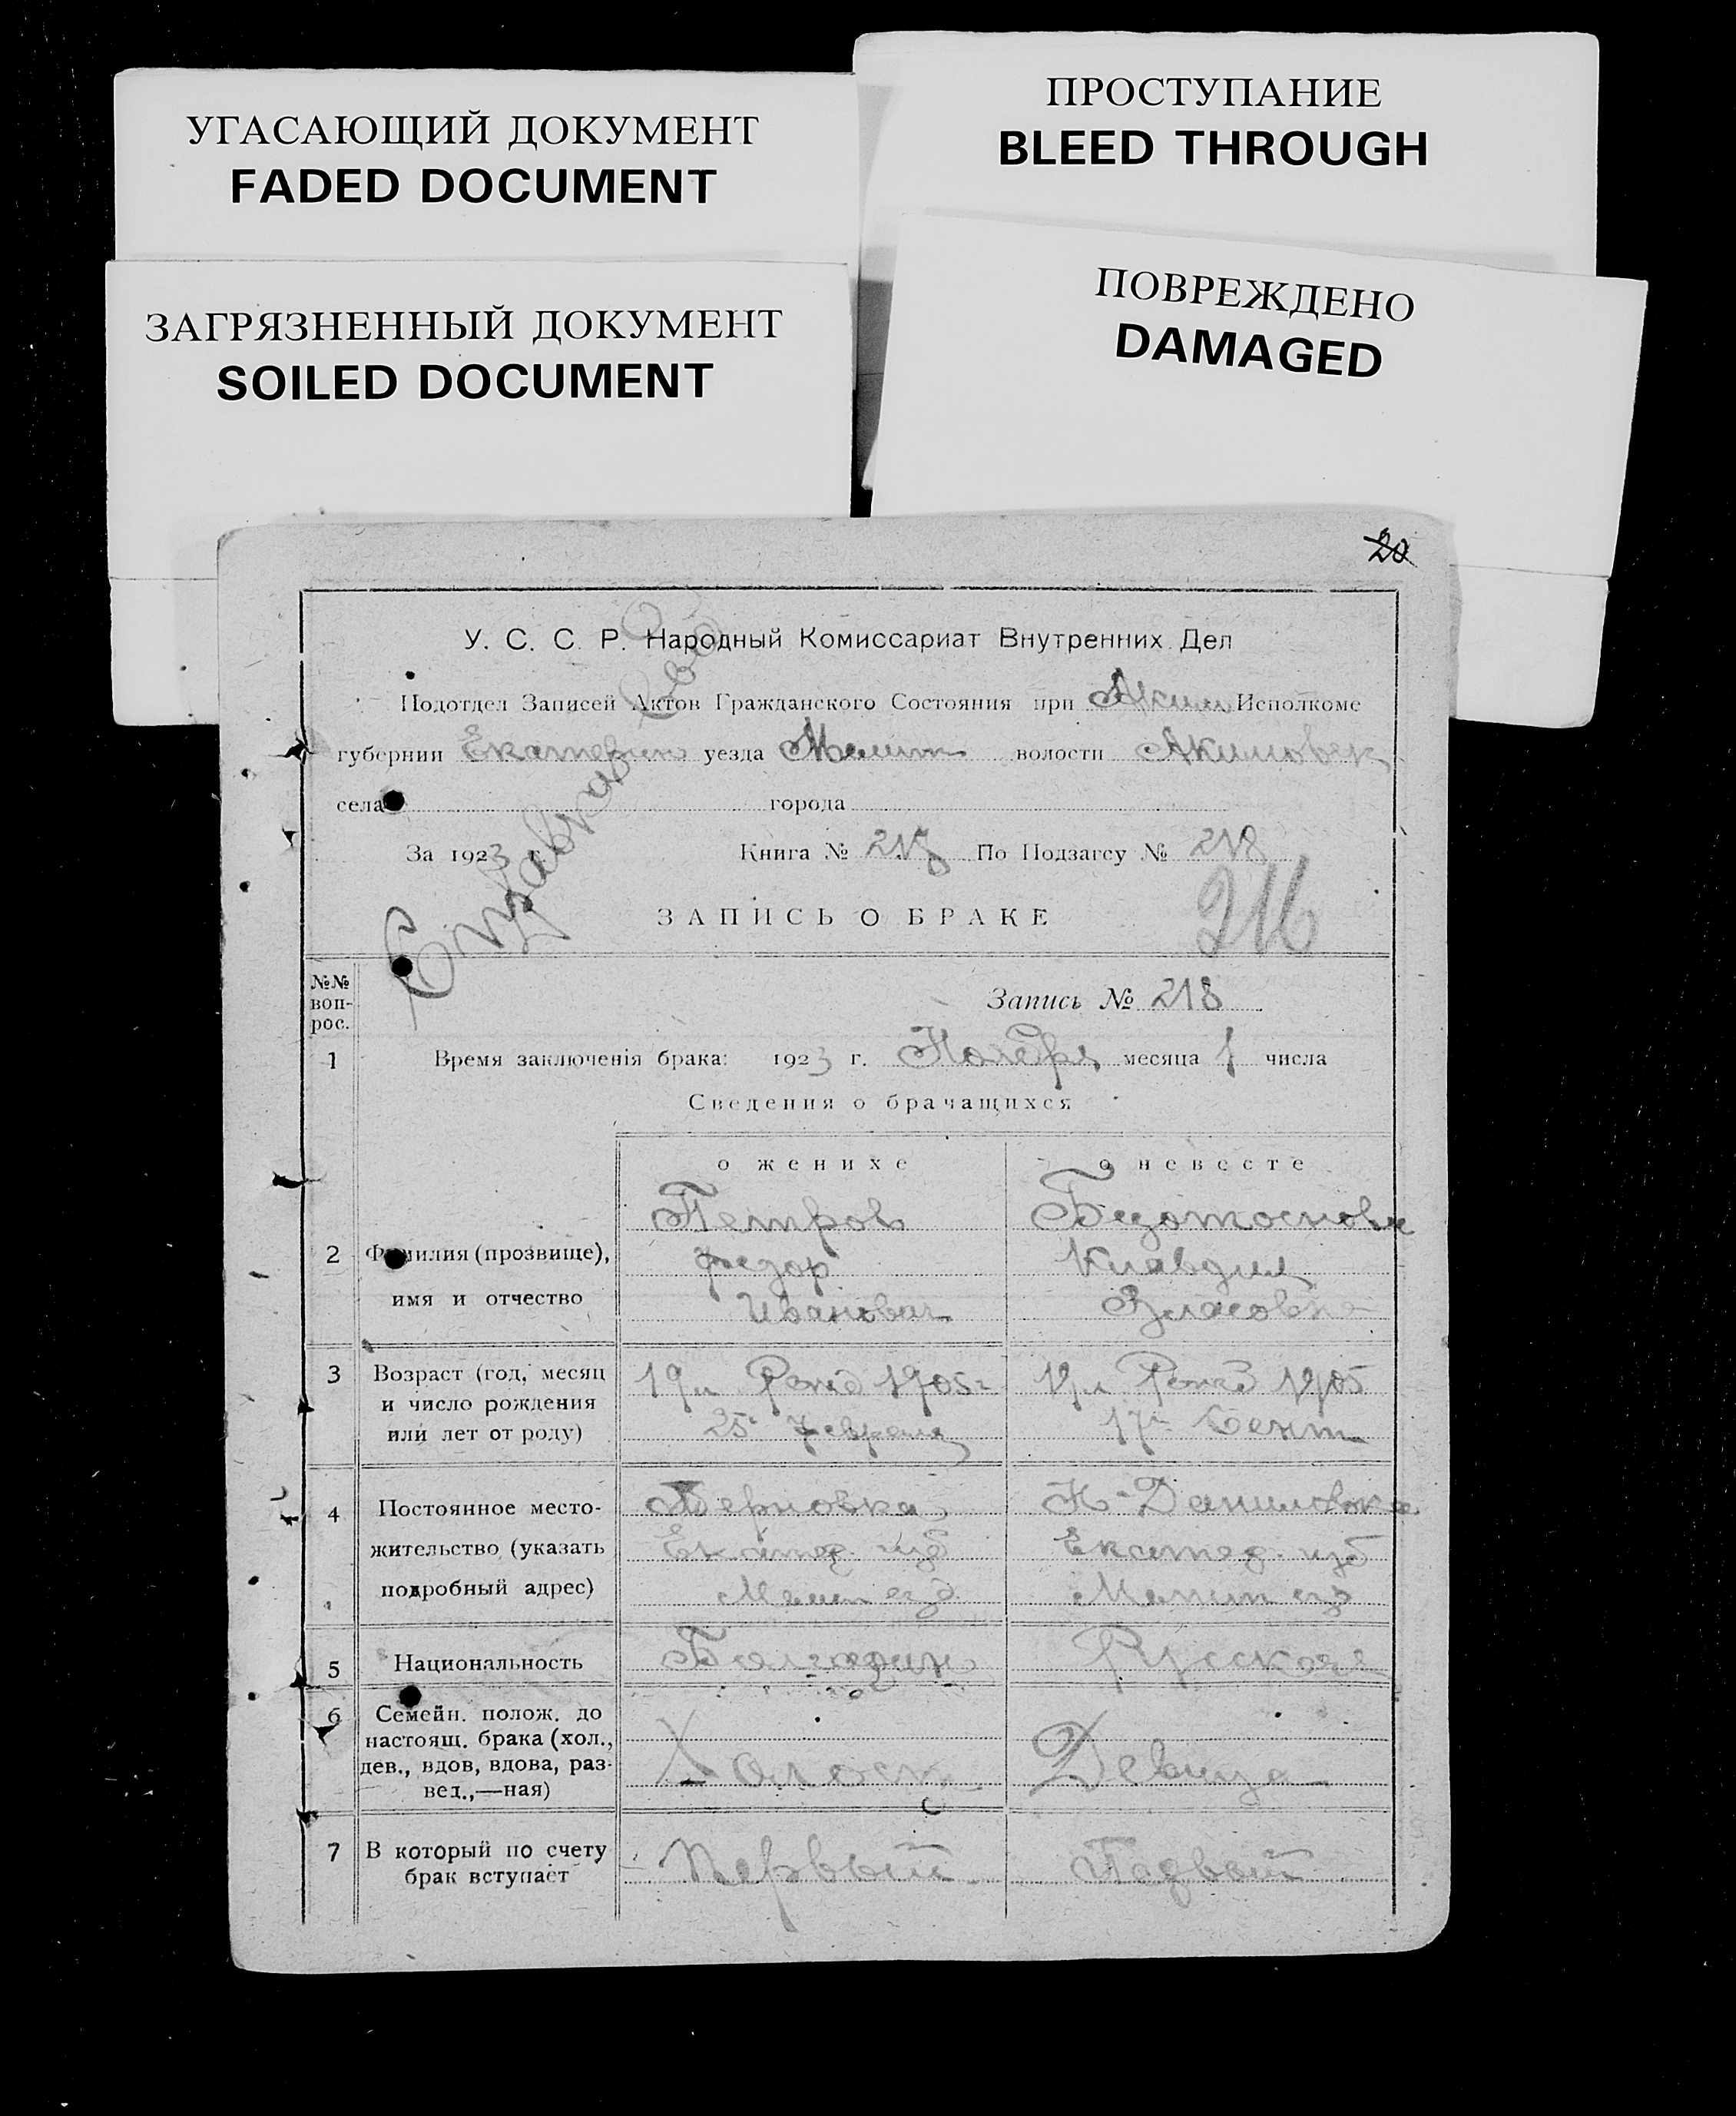 УГАСАЮЩИЙ ДОКУМЕНТ
FADED DOCUMENT
ПРОСТУПАНИЕ
BLEED THROUGH
ЗАГРЯЗНЕННЫЙ ДОКУМЕНТ
SOILED DOCUMENT
ПОВРЕЖДЕНО
DAMAGED
20
У. С. С. Р. Народный Комиссариат Внутренних Дел
Подотдел Записей Актов Гражданского Состояния при Аким Исполкоме
губернии Екатерин уезда Мелит волости Акимовск
села города
За 1923 г. Книга № 218 По Подзагсу № 218
ЗАПИСЬ О БРАКЕ
216
№№ воп-
рос.
Запись № 218
1 Время заключенія брака: 1923 г. Ноября месяца 1 числа
Сведения о брачащихся
о женихе о невесте
Петров
2 Фамилия (прозвище), Федор Клавдия
имя и отчество Иванович Власовна
3 Возраст (год, месяц 19 л Рожд 1905 г 19 л Рожд 1905
и число рождения
или лет от роду) 25 февраля 17 Сент
4 Постоянное место- Терновка Н-Даниловка
жительство (указать Екатер. губ Екатер. губ
подробный адрес) Мелит езд Мелит
5 Национальность Болгарин Русская
6 Семейн. полож. до
настоящ. брака (хол.,
дев., вдов, вдова, раз- Холост Девица
вед.,—ная)
7 В который по счету Первый Первый
брак вступает